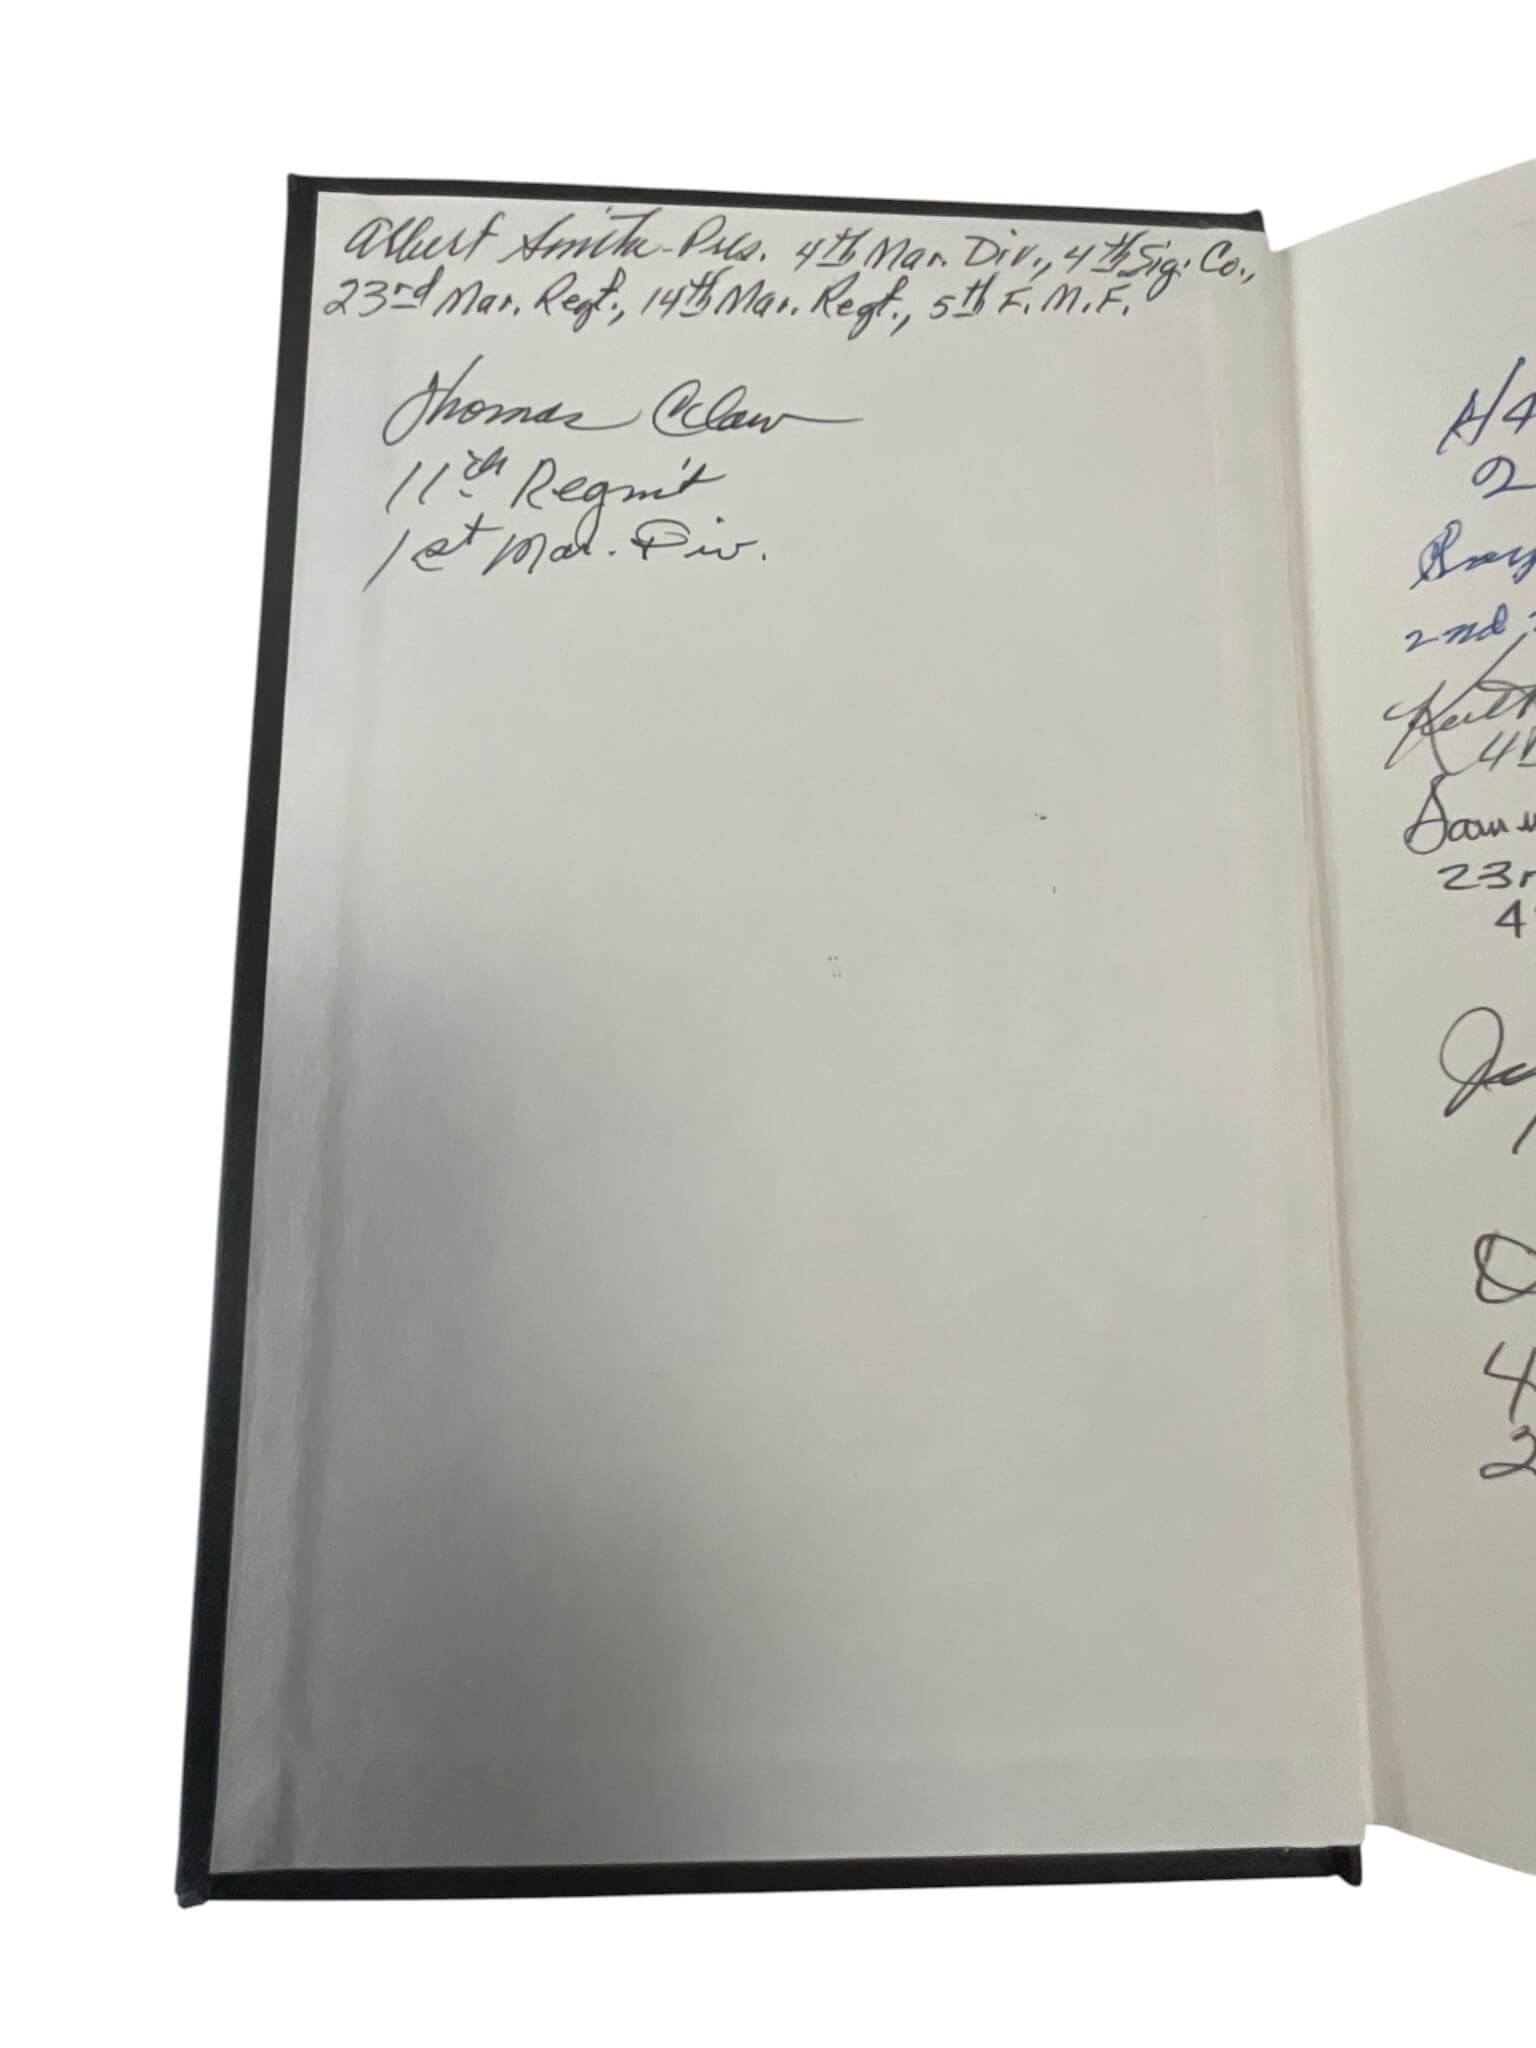 Albert Smith - Pres. 4th Mar. Div., 4th Sig. Co.,
23rd Mar. Regt., 14th Mar. Regt., 5th F.M.F.
Thomas Claw
11th Regmit
1st Mar. Div.
2
2nd
Keith
4th
Sam
23r
4
4
2